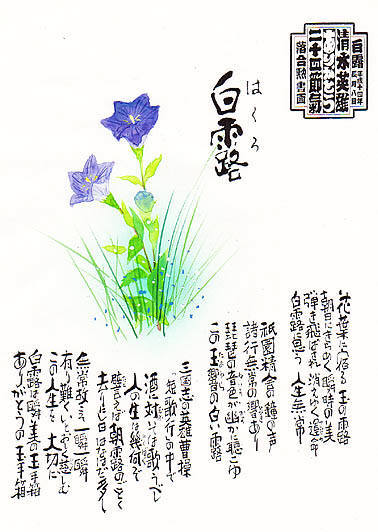 白露 平成十四年 長月八日
清水英雄
ありがとう
二十四節氣
落合勲書画
はくろ
白露
花や葉に宿る 玉の露
朝日にきらめく 瞬時の美
弾き飛ばされ 消えゆく運命
白露に思う 人生無常
祇園精舎の鐘の声
諸行無常の響あり
琵琶の音色が 幽かに聴こゆ
この玉響の白い露
三国志の英雄曹操
「短歌行」の中で
酒に対いては歌うべし
人の生は幾何ぞ
譬えば朝露のごとく
去りにし日はなはだ多し
無常故に一瞬一瞬
有り難く 慈しむ
この人生を 大切に
白露は瞬美の玉手箱
ありがとうの玉手箱